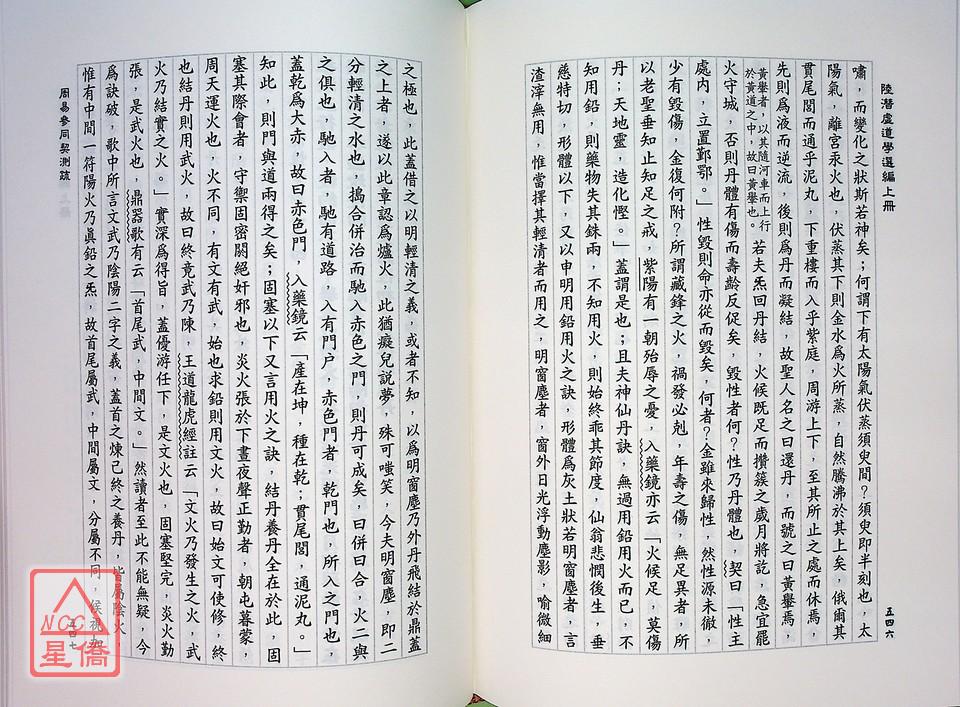 陸潛虛道學選編上冊
五四六
嘯，而變化之狀斯若神矣；何謂下有太陽氣伏蒸須臾間？須臾即半刻也，太
陽氣，離宮汞火也，伏蒸其下則金水為火所蒸，自然騰沸於其上矣，俄爾其
貫尾閭而通乎泥丸，下重樓而入乎紫庭，周游上下，至其所止之處而休焉，
先則為液而逆流，後則為丹而凝結，故聖人名之曰還丹，而號之曰黃轝焉，
黃轝者，以其隨河車而上行
於黃道之中，故曰黃轝也。
若夫炁回丹結，火候既足而攢簇之歲月將訖，急宜罷
火守城，否則丹體有傷而壽齡反促矣，毀性者何？性乃丹體也，契曰「性主
處內，立置鄞鄂。」性毀則命亦從而毀矣，何者？金雖來歸性，然性源未徹，
少有毀傷，金復何附？所謂藏鋒之火，禍發必剋，年壽之傷，無足異者，所
以老聖垂知止知足之戒，紫陽有一朝殆辱之憂，入藥鏡亦云「火候足，莫傷
丹；天地靈，造化慳。」蓋謂是也；且夫神仙丹訣，無過用鉛用火而已，不
知用鉛，則藥物失其銖兩，不知用火，則始終乖其節度，仙翁悲憫後生，垂
慈特切，形體以下，又以申明用鉛用火之訣，形體為灰土狀若明窗塵者，言
渣滓無用，惟當擇其輕清者而用之，明窗塵者，窗外日光浮動塵影，喻微細
之極也，此蓋借之以明輕清之義，或者不知，以為明窗塵乃外丹飛結於鼎蓋
之上者，遂以此章認為爐火，此猶癡兒說夢，殊可嗤笑，今夫明窗塵，即二
分輕清之水也，搗合併治而馳入赤色之門，則丹可成矣，曰併曰合，火二與
之俱也，馳入者，馳有道路，入有門户，赤色門者，乾門也，所入之門也，
蓋乾為大赤，故曰赤色門，入藥鏡云「產在坤，種在乾；貫尾閭，通泥丸。」
知此，則門與道兩得之矣；固塞以下又言用火之訣，結丹養丹全在於此，固
塞其際會者，守禦固密閼絕奸邪也，炎火張於下晝夜聲正勤者，朝屯暮蒙，
周天運火也，火不同，有文有武，始也求鉛則用文火，故曰始文可使修，終
也結丹則用武火，故曰終竟武乃陳，王道龍虎經註云「文火乃發生之火，武
火乃結實之火。」實深為得旨，蓋優游任下，是文火也，固塞堅完，炎火勤
張，是武火也，鼎器歌有云「首尾武，中間文。」然讀者至此不能無疑，今
為訣破，歌中所言文武乃陰陽二字之義，蓋首之煉己終之養丹，皆屬陰火，
惟有中間一符陽火乃眞鉛之炁，故首尾屬武，中間屬文，分屬不同，候視加
周易參同契測疏
五四七
NCC
星僑